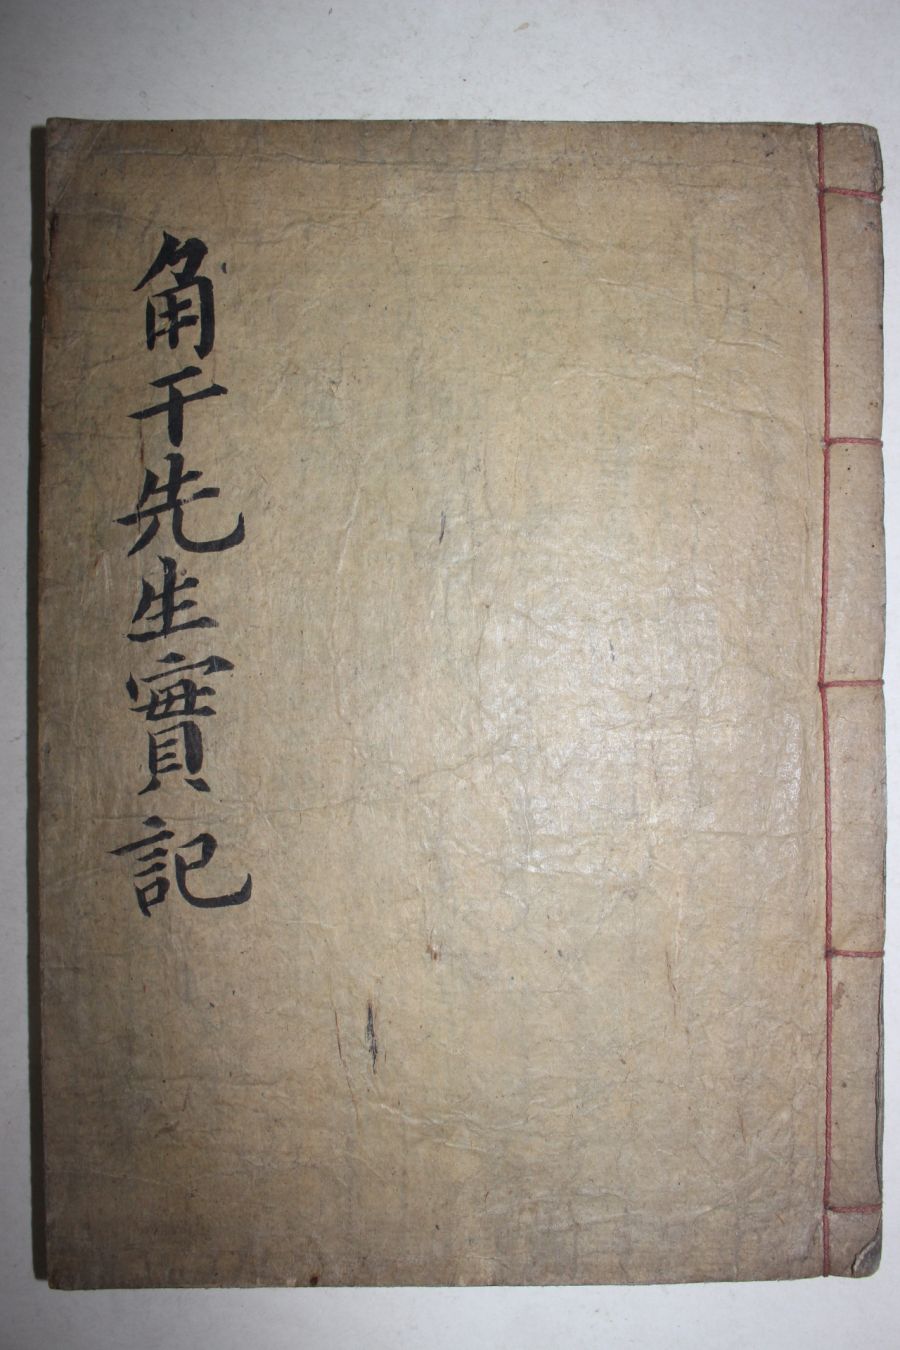 角干先生實記